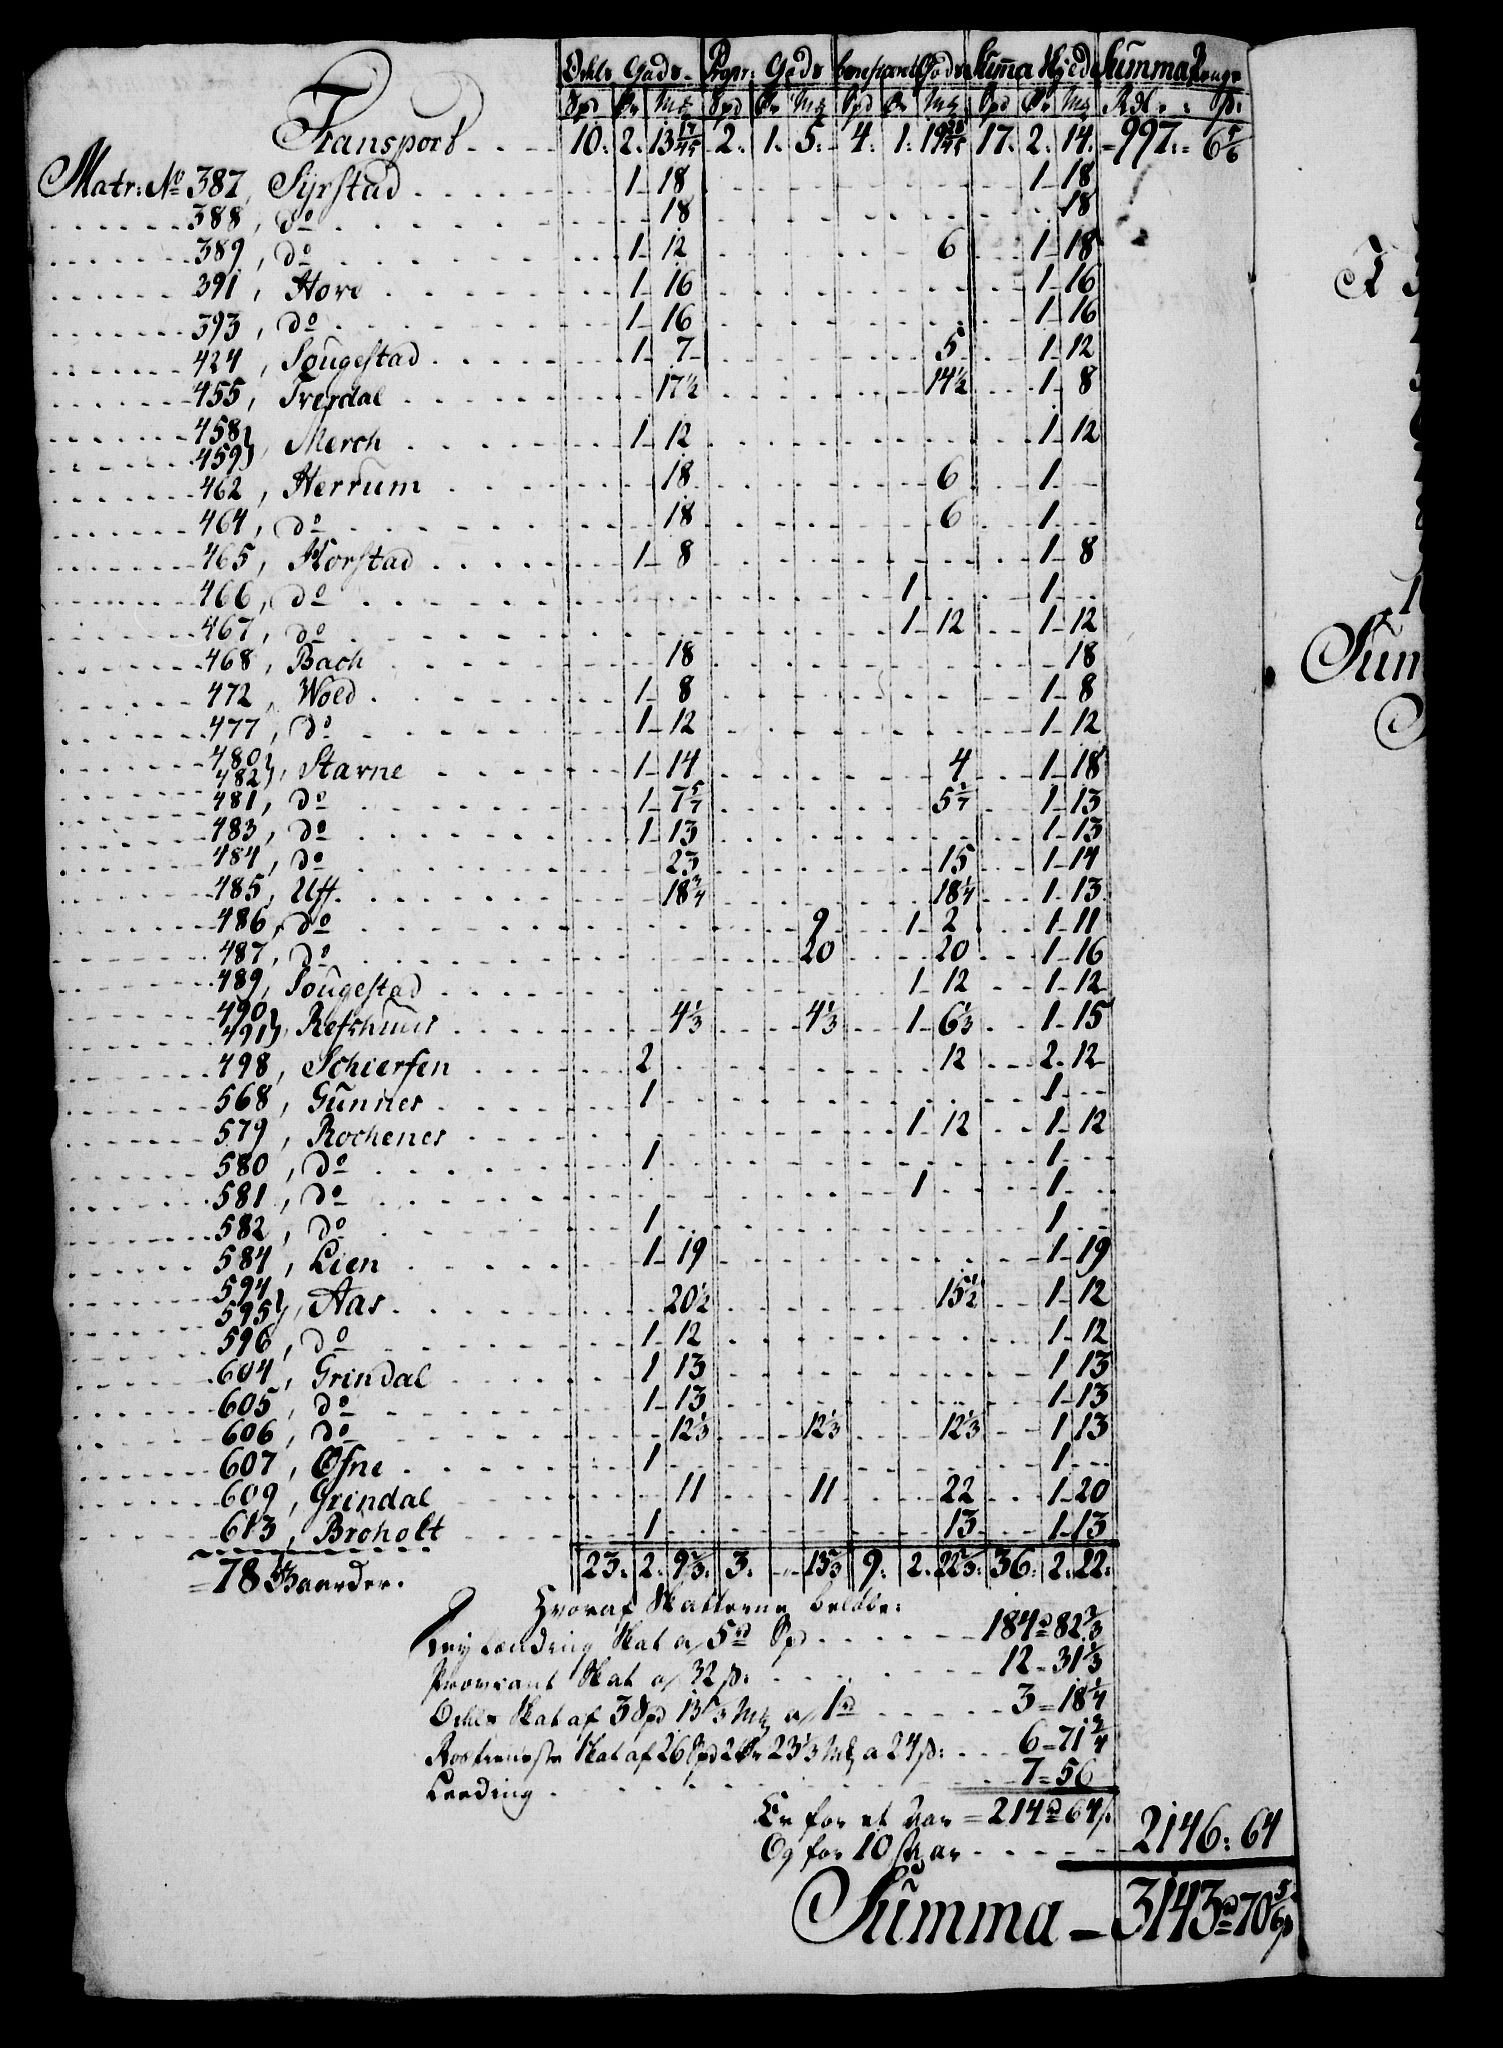 Odels Gods - Propr: Gods beneficeret Gods Summa Skyld Summa Penge
Spd Ør Mk Spd Ør Mk Spd Ør Mk Spd Ør Mk Rdlr : ß:
Transport . . . . 10: 2: 13 17/45 2: 1: 5: 4: 1: 19 28/45 17: 2: 14: =997: = 6 5/6
Matr: No 387, Syrstad . . . . 1 - 18 . . . . 1 - 18
388, do . . . . 18 . . . . 18
389, do . . . . 1 - 12 . . . . 6 . . . . 1 - 18
391, Hove . . . . 1 - 16 . . . . 1 - 16
393, do . . . . 1 - 16 . . . . 1 - 16
424, Sougestad . . . . 1 - 7 . . . . 5 . . . . 1 - 12
455, Frerdal . . . . 17 1/2 . . . . 14 1/2 . . . . 1 - 8
458
459 } Merch . . . . 1 - 12 . . . . 1 - 12
462, Herrum . . . . 18 . . . . 6 . . . . 1 - -
464, do . . . . 18 . . . . 6 . . . . 1 - -
465, Horstad . . . . 1 - 8 . . . . 1 - 8
466, do . . . . 1 . . . . 1 - -
467, do . . . . 1 - 12 . . . . 1 - 12
468, Bach . . . . 18 . . . . 18
472, Wold . . . . 1 - 8 . . . . 1 - 8
477, do . . . . 1 - 12 . . . . 1 - 12
480
482 }, Starne . . . . 1 - 14 . . . . 4 . . . . 1 - 18
481, do . . . . 1 - 7 5/7 . . . . 5 2/7 . . . . 1 - 13
483, do . . . . 1 - 13 . . . . 1 - 13
484, do . . . . 23 . . . . 15 . . . . 1 - 14
485, Uff . . . . 18 3/4 . . . . 18 1/4 . . . . 1 - 13
486, do . . . . 9 . . . . 1 - 2 . . . . 1 - 11
487, do . . . . 20 . . . . 20 . . . . 1 - 16
489, Sougestad . . . . 1 12 . . . . 1 - 12
490
491 }, Refshuus . . . . 4 1/3 . . . . 4 1/3 . . . . 1 - 6 1/3 . . . . 1 - 15
498, Schierfen . . . . 2 . . . . 12 . . . . 2 - 12
568, Gunnes . . . . 1 . . . . 1 - -
579, Rochenes . . . . 1 - 12 . . . . 1 - 12
580, do . . . . 1 . . . . 1 - -
581, do . . . . 1 . . . . 1 - -
582, do . . . . 1 . . . . 1 - -
584, Lien . . . . 1 - 19 . . . . 1 - 19
594
595 }, Aas . . . . 20 1/2 . . . . 15 1/2 . . . . 1 - 12
596, do . . . . 1 - 12 . . . . 1 - 12
604, Grindal . . . . 1 13 . . . . 1 13
605, do . . . . 1 - 13 . . . . 1 - 13
606, do . . . . 12 1/3 . . . . 12 1/3 . . . . 12 1/3 . . . . 1 13
607, Øfne . . . . 1 . . . . 1 - -
609, Grindal . . . . 11 . . . . 11 . . . . 22 . . . . 1 - 20
613, Broholt . . . . 1 . . . . 13 . . . . 1 - 13
=78 Gaarder. 23: 2: 9 2/3: 3: - 13 2/3 9: 2: 22 2/3: 36: 2: 22:
Hvoraf Skatterne beløbe:
Leylænding Skat a/ 5 rd Spd . . . . 184 rd 82 2/3
Proviant Skat a/ 32 ß: . . . . 12 = 31 1/3
Odels Skat af 3 Spd 13 2/3 Mk a/ 1 rd . . . . 3 = 18 1/4
Rostieneste Skat af 26 Spd 2 Ør 23 1/3 Mk a 24 ß: . . . . 6 = 71 3/4
Leeding . . . . 7 = 56
Er for et Aar = 214 rd 64 ß
Og for 10 Aar . . . . 2146: 64
Summa - 3143 rd 70 5/6 ß
Sum